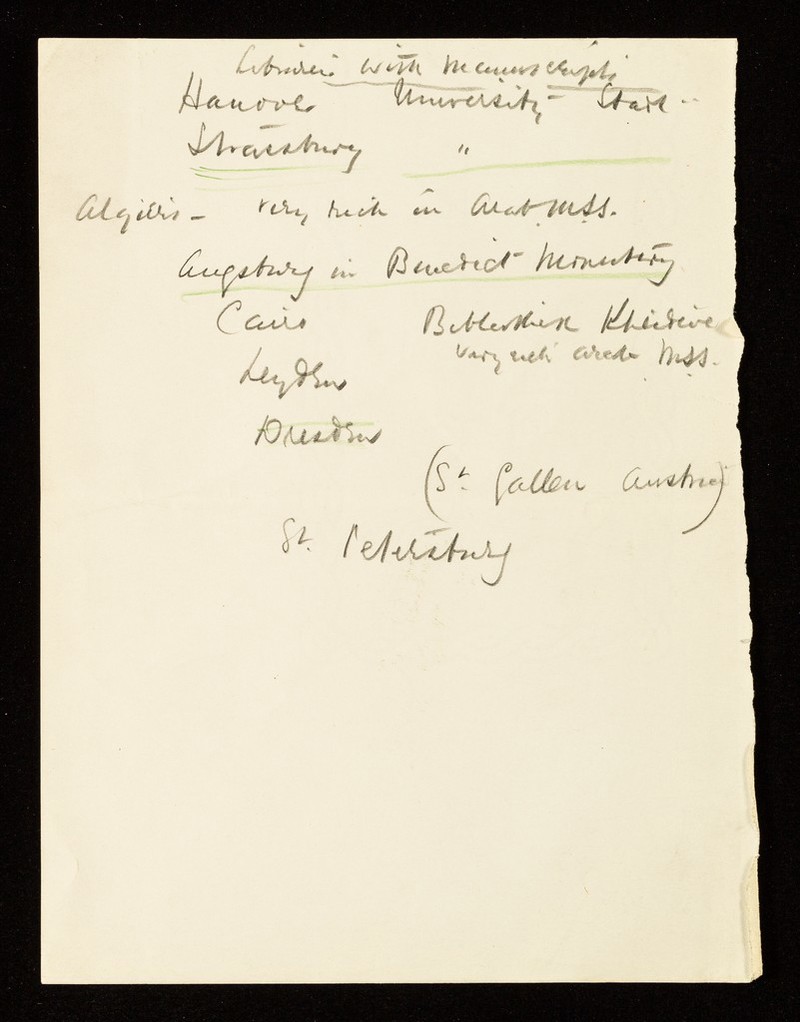 Libraries with manuscripts
Hanover University Staat
Strassburg "
Algiers - very rich in Arab MSS.
Augsburg in Benedict Monastery
Cairo Bibliothek Khedive
very rich Arab MSS.
Leyden
Dresden
(St. Gallen Austria)
St. Petersburg